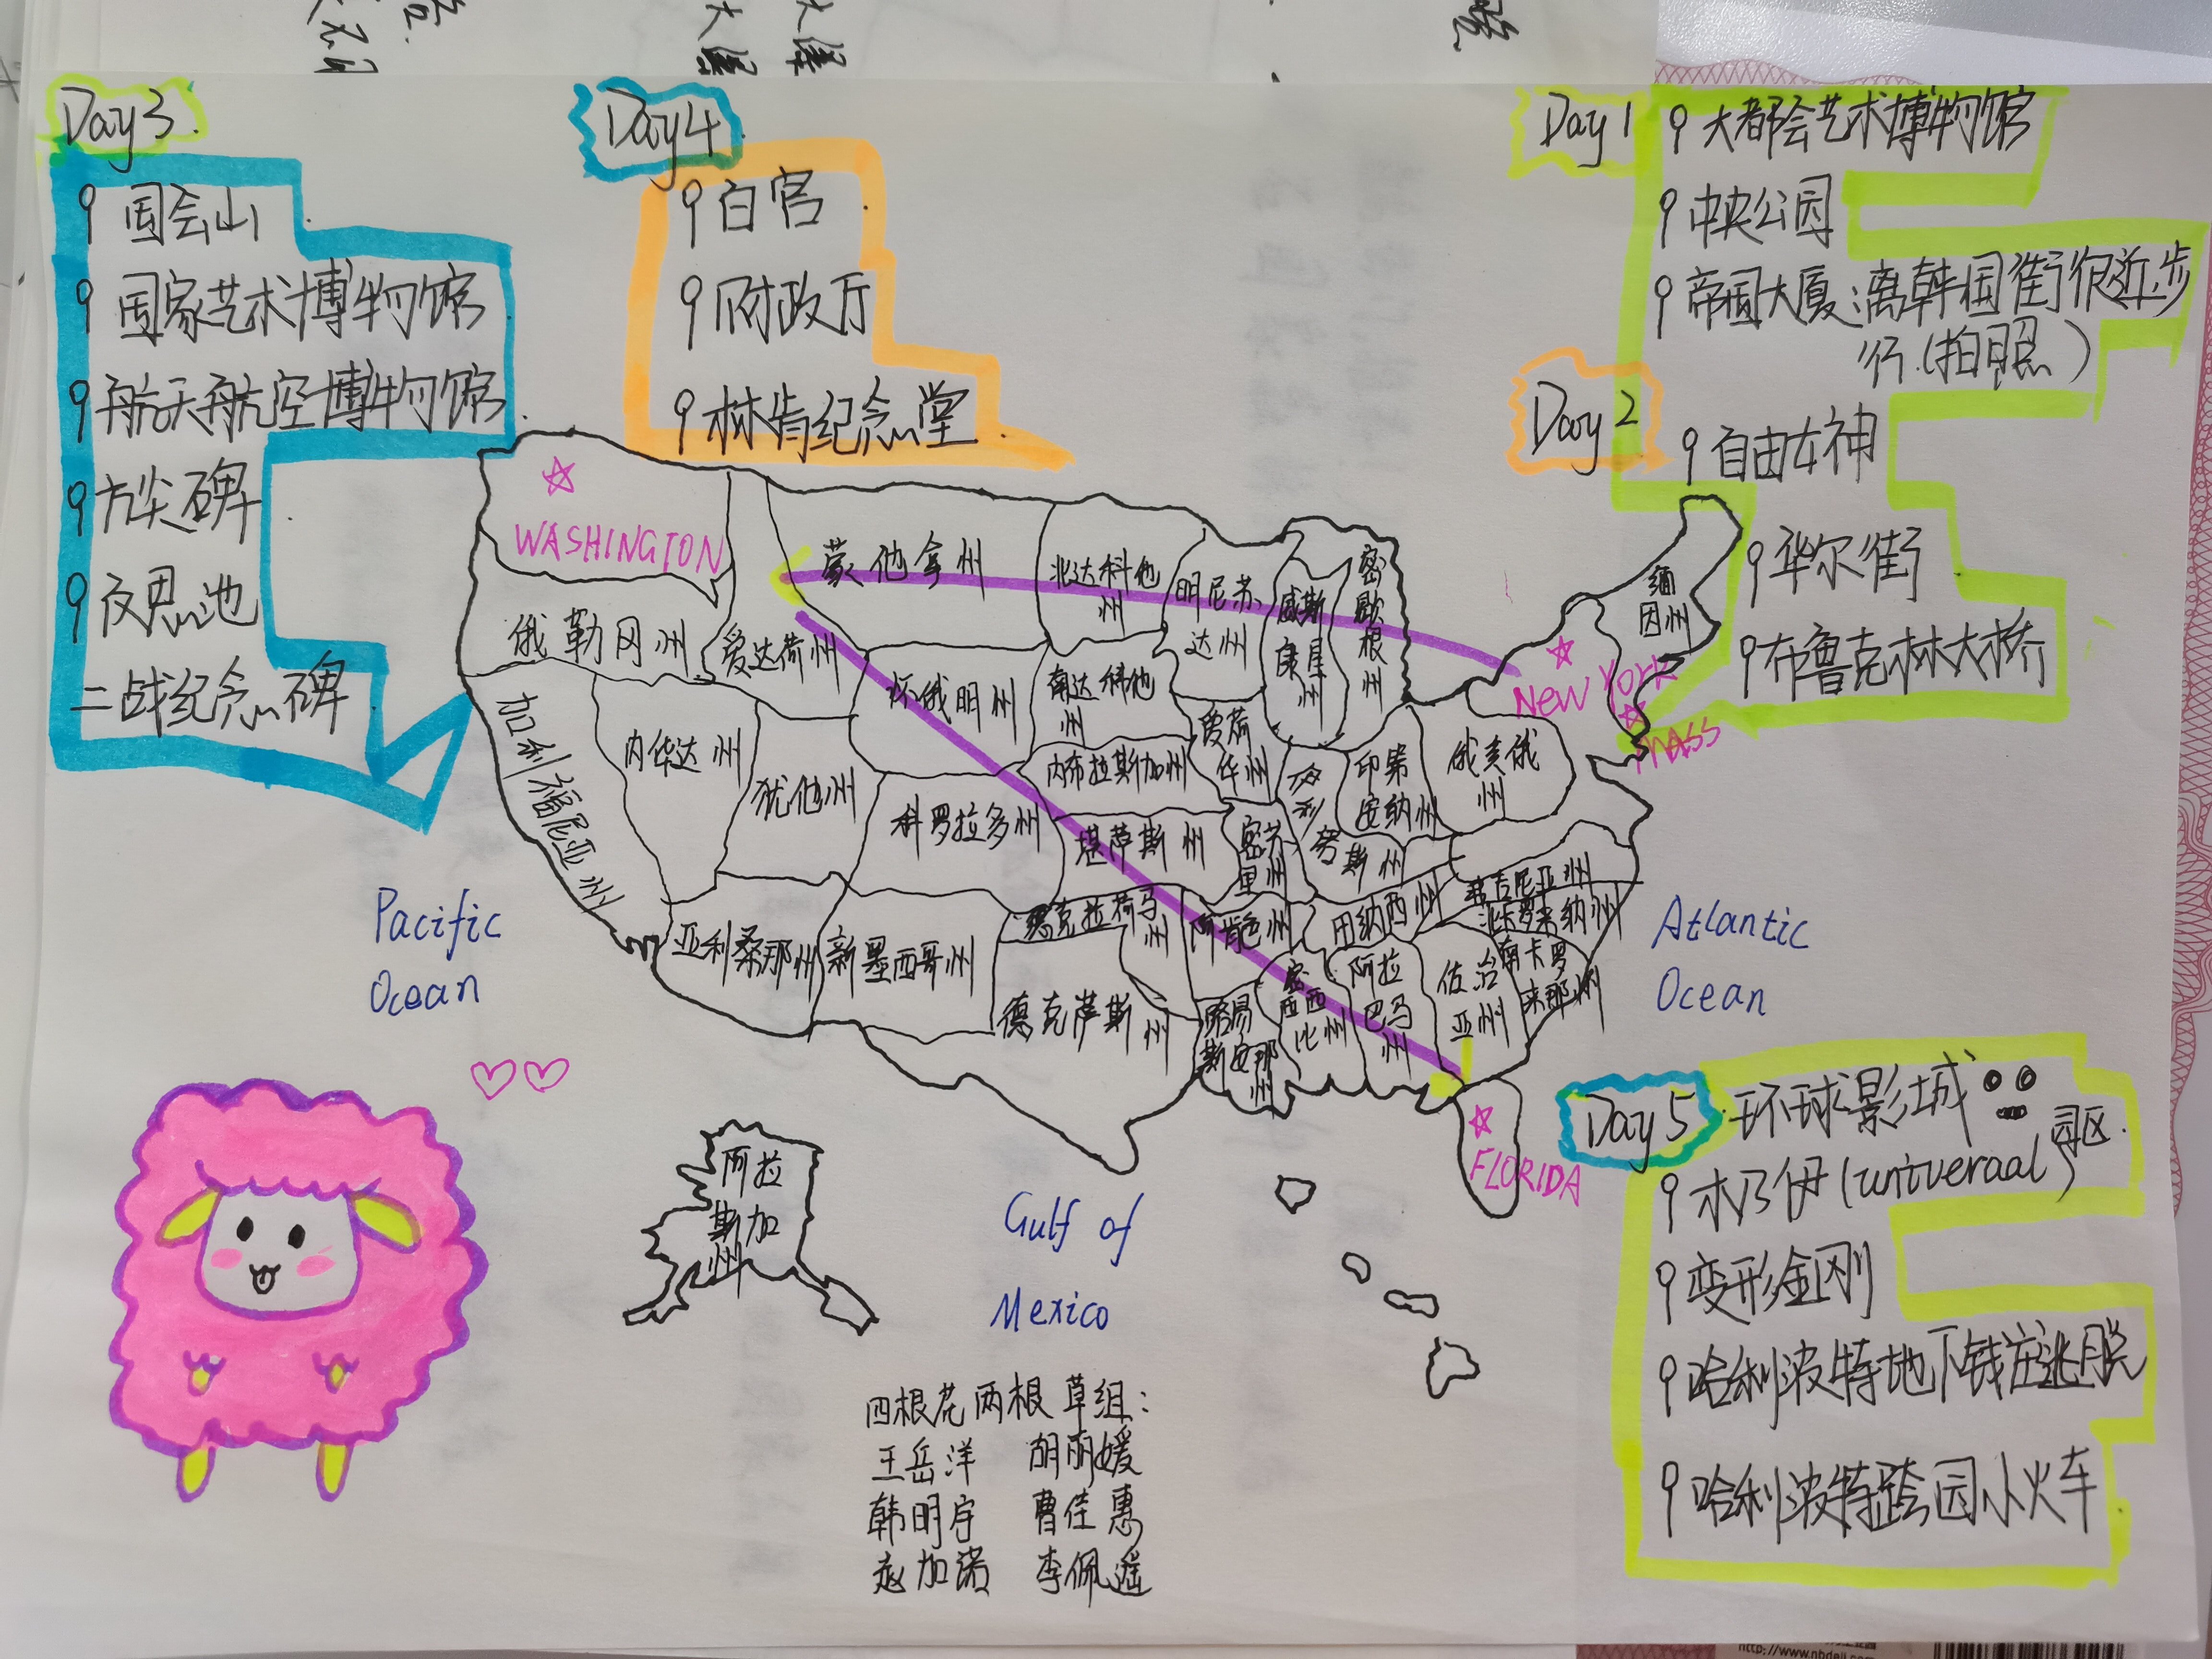 Day 3.
国会山
国家艺术博物馆
航天航空博物馆
方尖碑
反思池
二战纪念碑
Day4
白宫
财政厅
林肯纪念堂
Day 1
大都会艺术博物馆
中央公园
帝国大厦:离韩国街很近步
行.(拍照)
Day 2
自由女神
华尔街
布鲁克林大桥
WASHINGTON
蒙他拿州
北达科他
州
明尼苏
达州
威斯
康星
州
密歇根州
缅因州
俄勒冈州
爱达荷州
怀俄明州
南达科他
州
New York
MASS
加利福尼亚州
内华达州
犹他州
内布拉斯加州
爱荷
华州
印第
安纳州
俄亥俄
州
科罗拉多州
堪萨斯州
密苏里州
弗吉尼亚州
亚利桑那州
新墨西哥州
田纳西州
德克萨斯
州
路易
斯安那
州
密西西
比州
阿拉
巴马
州
佐治
亚州
南卡罗
来那州
Pacific
Ocean
Atlantic
Ocean
FLORIDA
阿拉
斯加
州
Gulf of
Mexico
Day 5
环球影城
木乃伊(univeraal)
变形金刚
哈利波特地下钱庄逃脱
哈利波特跨园小火车
四根花两根草组:
王岳洋 胡丽媛
韩明宇 曹佳惠
赵加诺 李佩遥